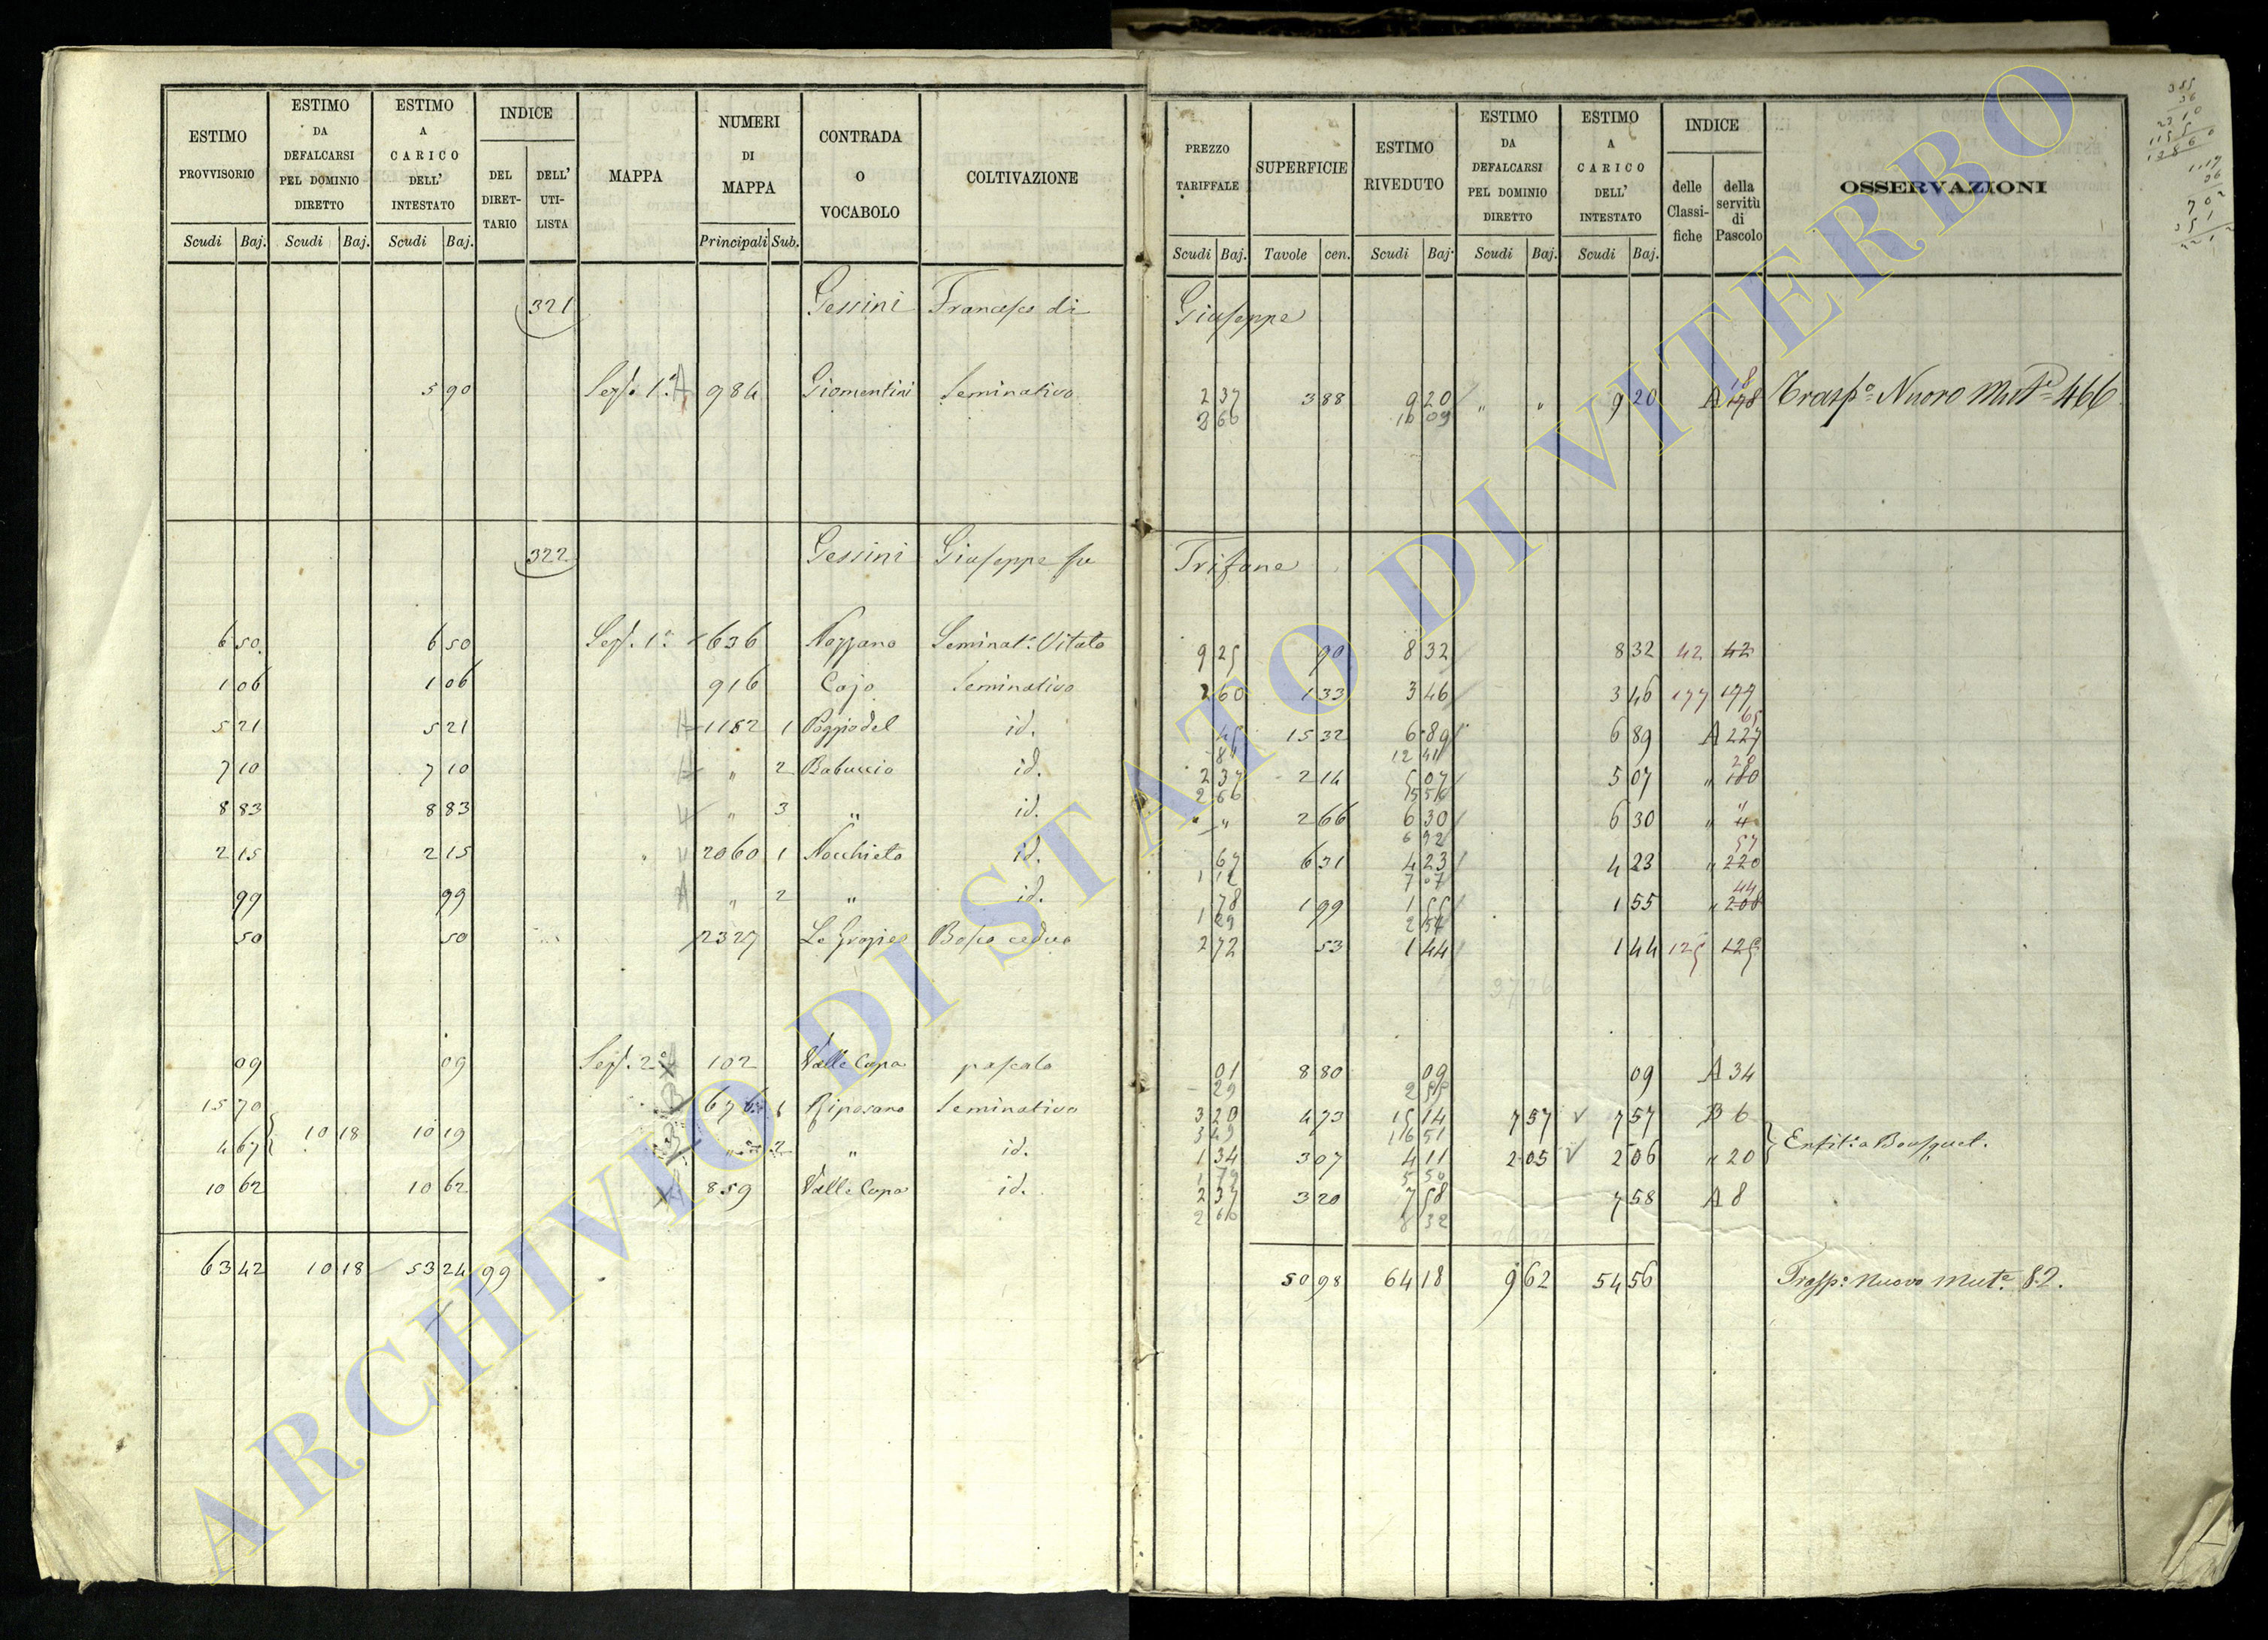 ESTIMO PROVVISORIO Scudi Baj.
ESTIMO DA DEFALCARSI PEL DOMINIO DIRETTO Scudi Baj.
ESTIMO A CARICO DELL' INTESTATO Scudi Baj.
INDICE DEL DIRETTARIO DELL' UTILISTA
MAPPA
NUMERI DI MAPPA Principali Sub.
CONTRADA O VOCABOLO
COLTIVAZIONE
PREZZO TARIFFALE Scudi Baj.
SUPERFICIE Tavole cen.
ESTIMO RIVEDUTO Scudi Baj.
ESTIMO DA DEFALCARSI PEL DOMINIO DIRETTO Scudi Baj.
ESTIMO A CARICO DELL' INTESTATO Scudi Baj.
INDICE delle Classifiche della servitù di Pascolo
OSSERVAZIONI
321 Gessini Francesco di Giuseppe
5 90 Sez. 1ª A 984 Giomentini Seminativo 2 37 3 88 9 20 " " 9 20 A 18 Trasp.º Nuovo Mut.e 466
2 66 16 09
322 Gessini Giuseppe fu Trifone
6 50 6 50 Sez. 1ª 636 Nozzano Seminat.º Vitato 9 25 90 8 32 8 32 42 42
1 06 1 06 916 Cajo Seminativo 2 60 1 33 3 46 3 46 177 177
5 21 5 21 1152 1 Poggio del id. 45 15 32 6 89 6 89 A 227 65
7 10 7 10 " 2 Babuccio id. 2 37 2 14 5 07 5 07 " 180 20
8 83 8 83 " 3 " id. " " 2 66 6 30 6 30 " "
2 15 2 15 2060 1 Nocchieto id. 67 6 31 4 23 4 23 " 220 57
99 99 " 2 " id. 78 1 99 1 55 1 55 " 208 44
50 50 2327 Bosco ceduo 2 72 53 1 44 1 44 125 125
09 09 Sez. 2ª 102 Valle Capa pascolo 01 8 80 09 09 A 34
15 70 676 1 Riposaro Seminativo 3 20 4 73 15 14 7 57 7 57 B 6
10 18 10 19 Enfit.ª a Bousquet.
4 67 " 2 " id. 1 34 3 07 4 11 2 05 2 06 " 20
10 62 10 62 859 Valle Capa id. 2 37 3 20 7 58 7 58 A 8
63 42 10 18 53 24 99 50 98 64 18 9 62 54 56 Trasp.º Nuovo Mut.e 82.
ARCHIVIO DI STATO DI VITERBO